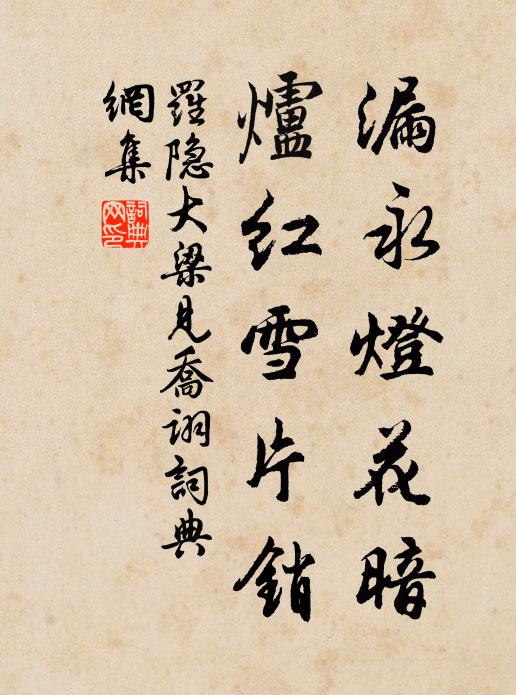 漏永燈花暗
爐紅雪片銷
羅隐大梁見喬詡詞典
網集
詞典
网印